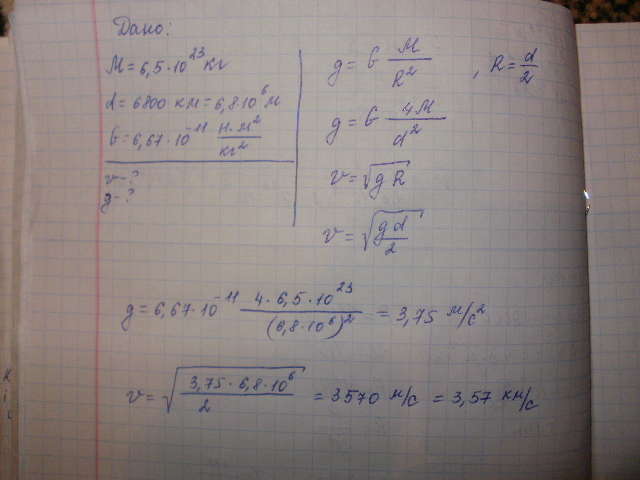 Дано:
M = 6,5·10²³ кг
d = 6800 км = 6,8·10⁶ м
G = 6,67·10⁻¹¹ Н·м²/кг²
v - ?
g - ?
g = G M/R² , R = d/2
g = G 4M/d²
v = √(g R)
v = √(gd/2)
g = 6,67·10⁻¹¹ 4·6,5·10²³/(6,8·10⁶)² = 3,75 м/с²
v = √(3,75·6,8·10⁶/2) = 3570 м/с = 3,57 км/с